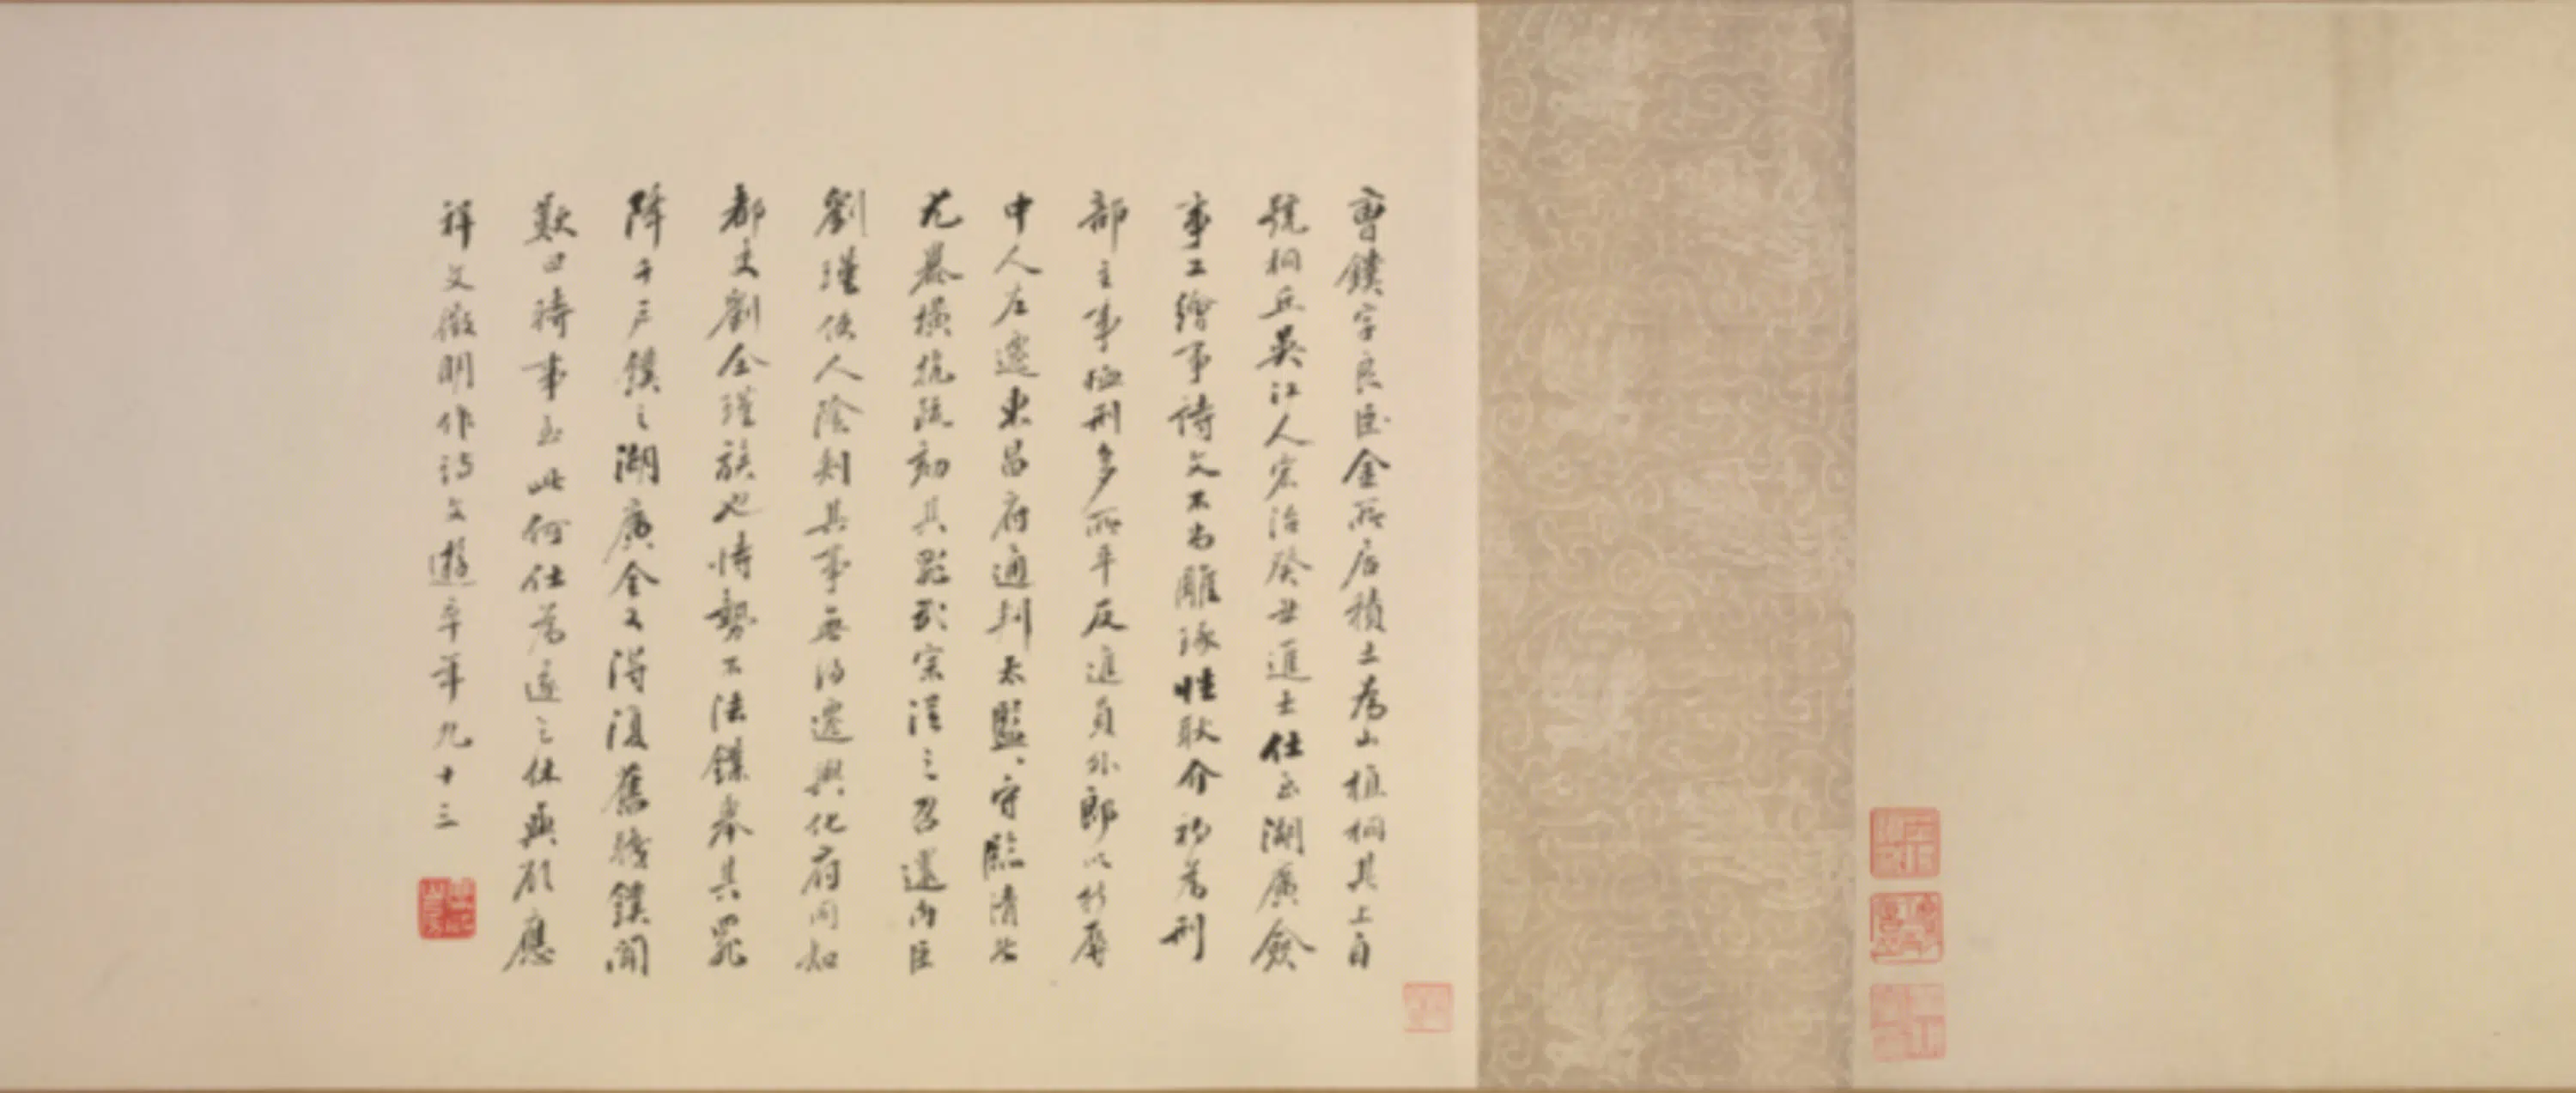 曹鏷字良臣金所居積土為山植桐其上自
號桐丘吳江人宏治癸丑進士仕至湖廣僉
事工繪事詩文不尚雕琢性耿介初為刑
部主事恤刑多所平反進員外郎以忤
中人左遷東昌府通判太監守臨清者
尤暴橫抗疏劾其罪武宗從之召還內臣
劉瑾使人陰刺其事無得遷興化府同知
都吏劉全瑾族也恃勢不法鏷奉其罪
降千戶鏷之湖廣全又得復舊職鏷聞
歎曰時事至此何仕為遂之休與顧應
祥文徵明作詩文遊卒年九十三